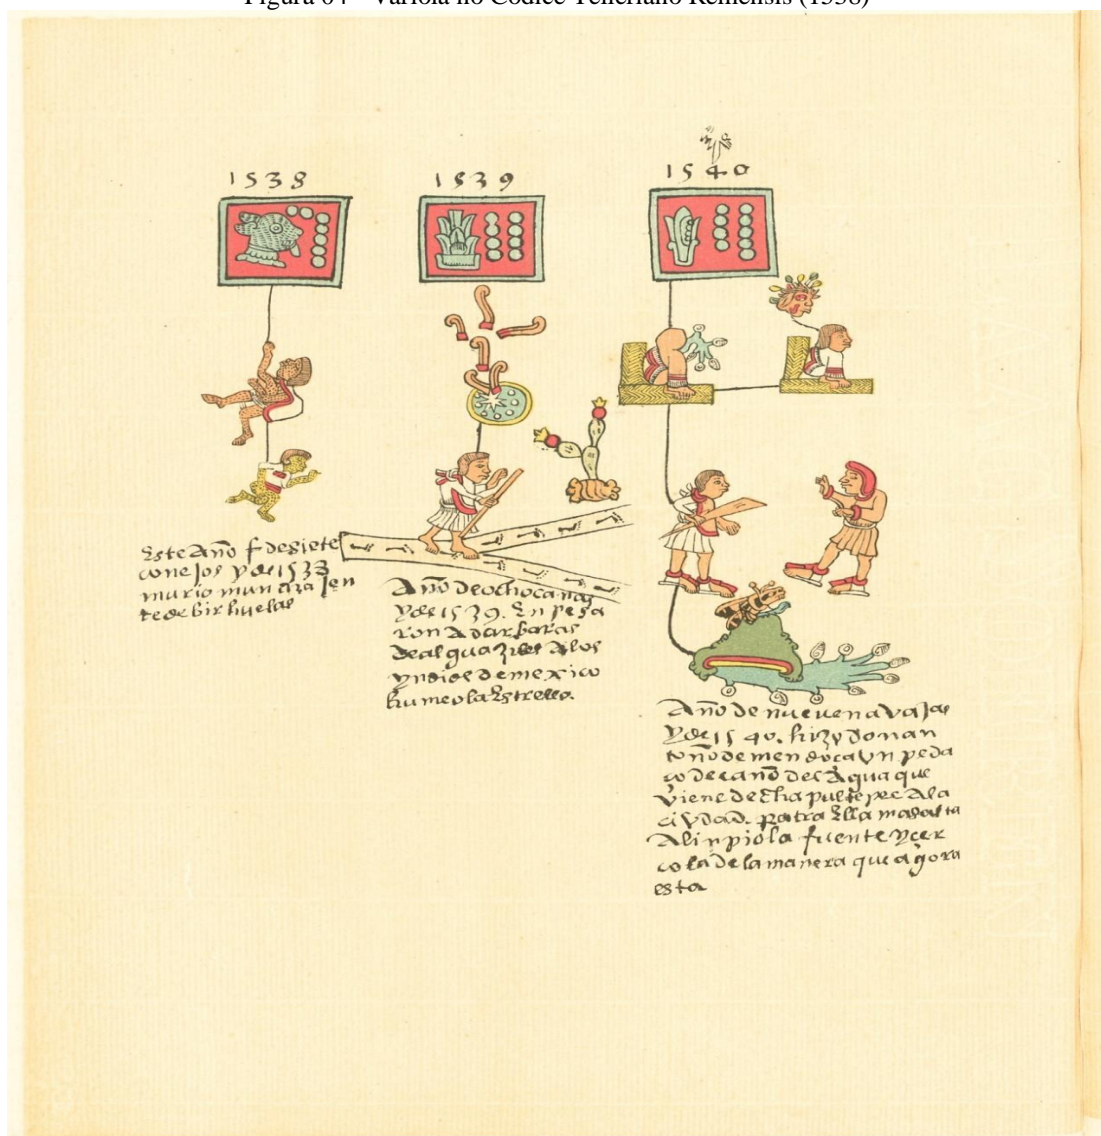 Figura 04 – Varíola no Códice Telleriano Remensis (1538)
1538
1539
1540
Este Año f de siete
conejos y de 1538
murio muncha jen
te de birhuelas
Año de ocho cañas
y de 1539. Enpesa
ron A dar baras
de alguaziles A los
yndios de mexico
humeo la Estrella.
Año de nueve navajas
y de 1540. hizo don an
toño de mendoca Un peda
co de caño del Agua que
viene de chapultepec A la
ciudad.
Alinpio la fuente y cer
co la de la manera que agora
esta